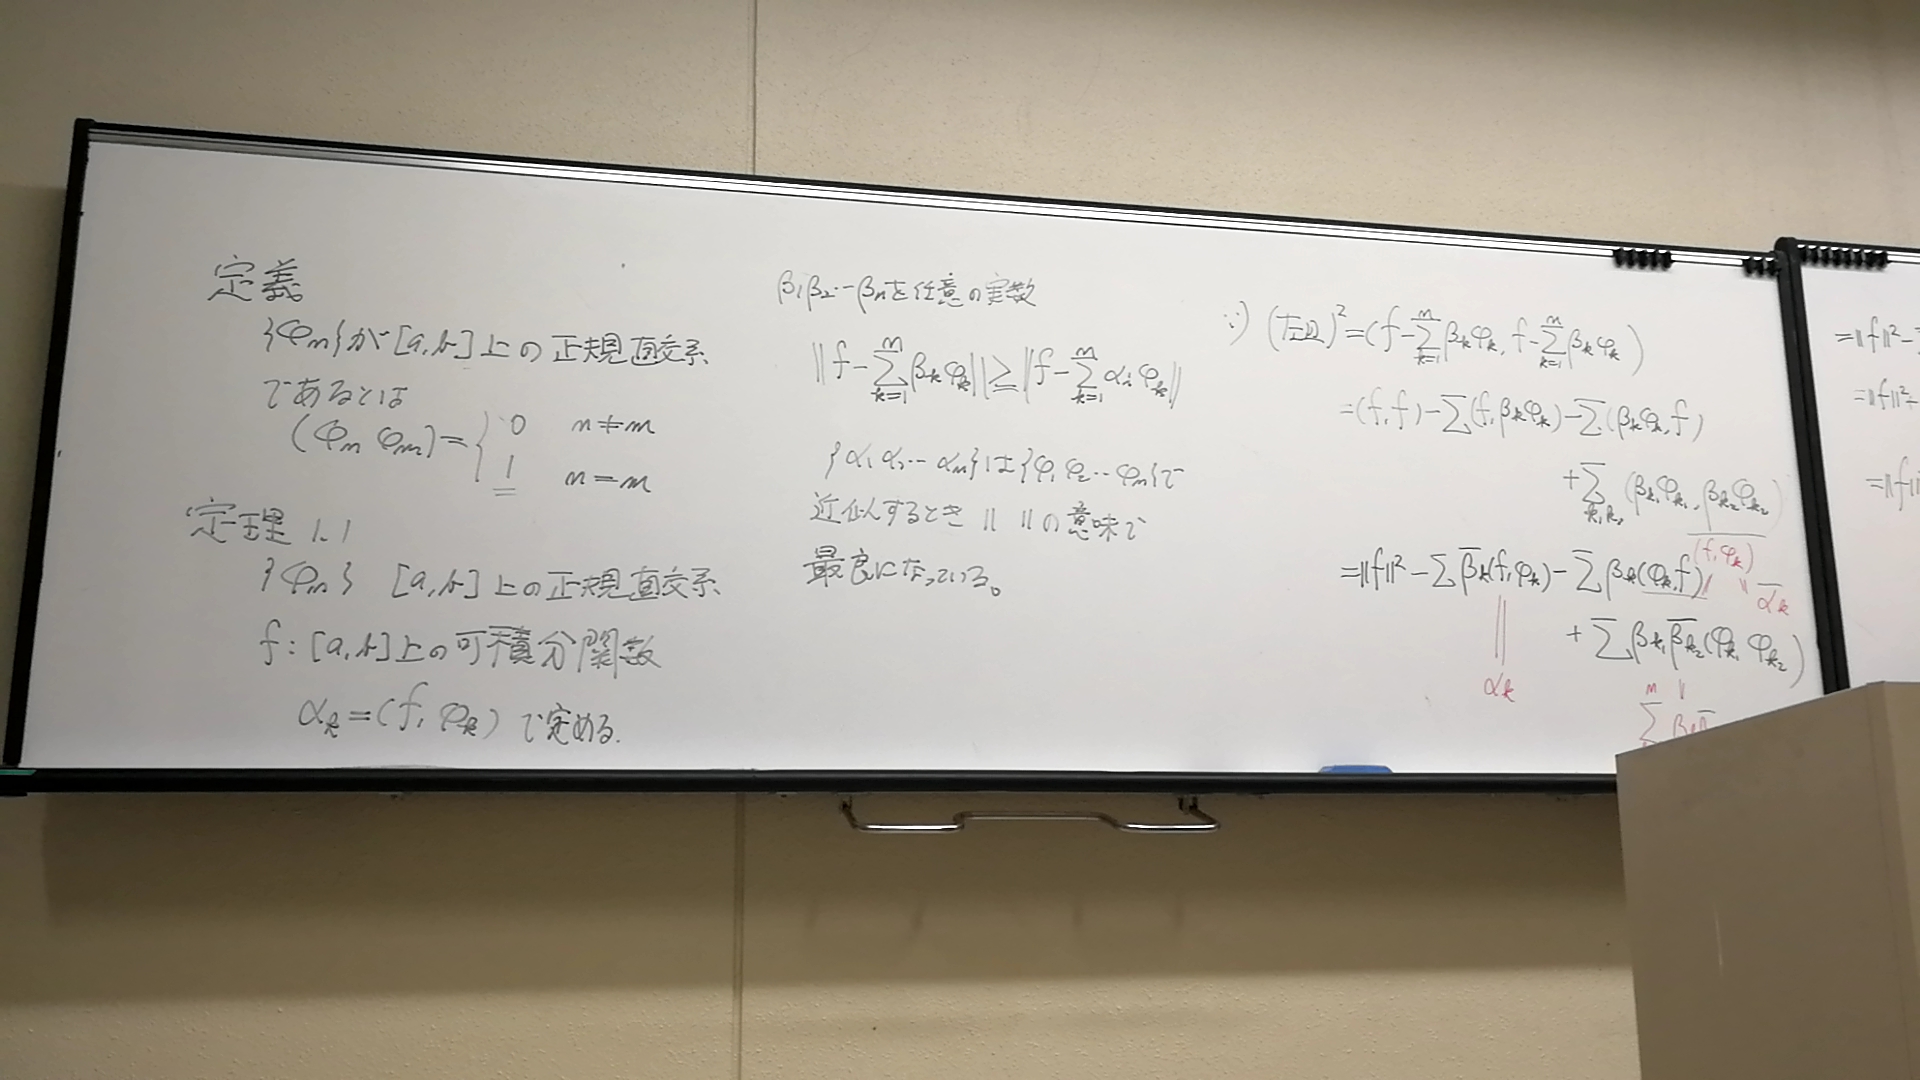 定義
{φn}が[a,b]上の正規直交系
であるとは
(φn φm)={0 n≠m
1 n=m
定理 1.1
{φn} [a,b]上の正規直交系
f:[a,b]上の可積分関数
αk=(f,φk)で定める.
β1β2…βnを任意の実数
||f-∑_{k=1}^{n}βkφk||≧||f-∑_{k=1}^{n}αkφk||
{α1 α2…αn}は{φ1 φ2…φn}で
近似するとき || ||の意味で
最良になっている。
∵) (左辺)²=(f-∑_{k=1}^{n}βkφk, f-∑_{k=1}^{n}βkφk)
=(f,f)-∑(f,βkφk)-∑(βkφk,f)
+∑_{k1,k2}(βk1φk1,βk2φk2)
(f,φk)
=||f||²-∑β̅k(f,φk)-∑βk(φk,f) || α̅k
|| αk
+∑βk1β̅k2(φk1 φk2)
=||f||²-
=||f||²
=||f||